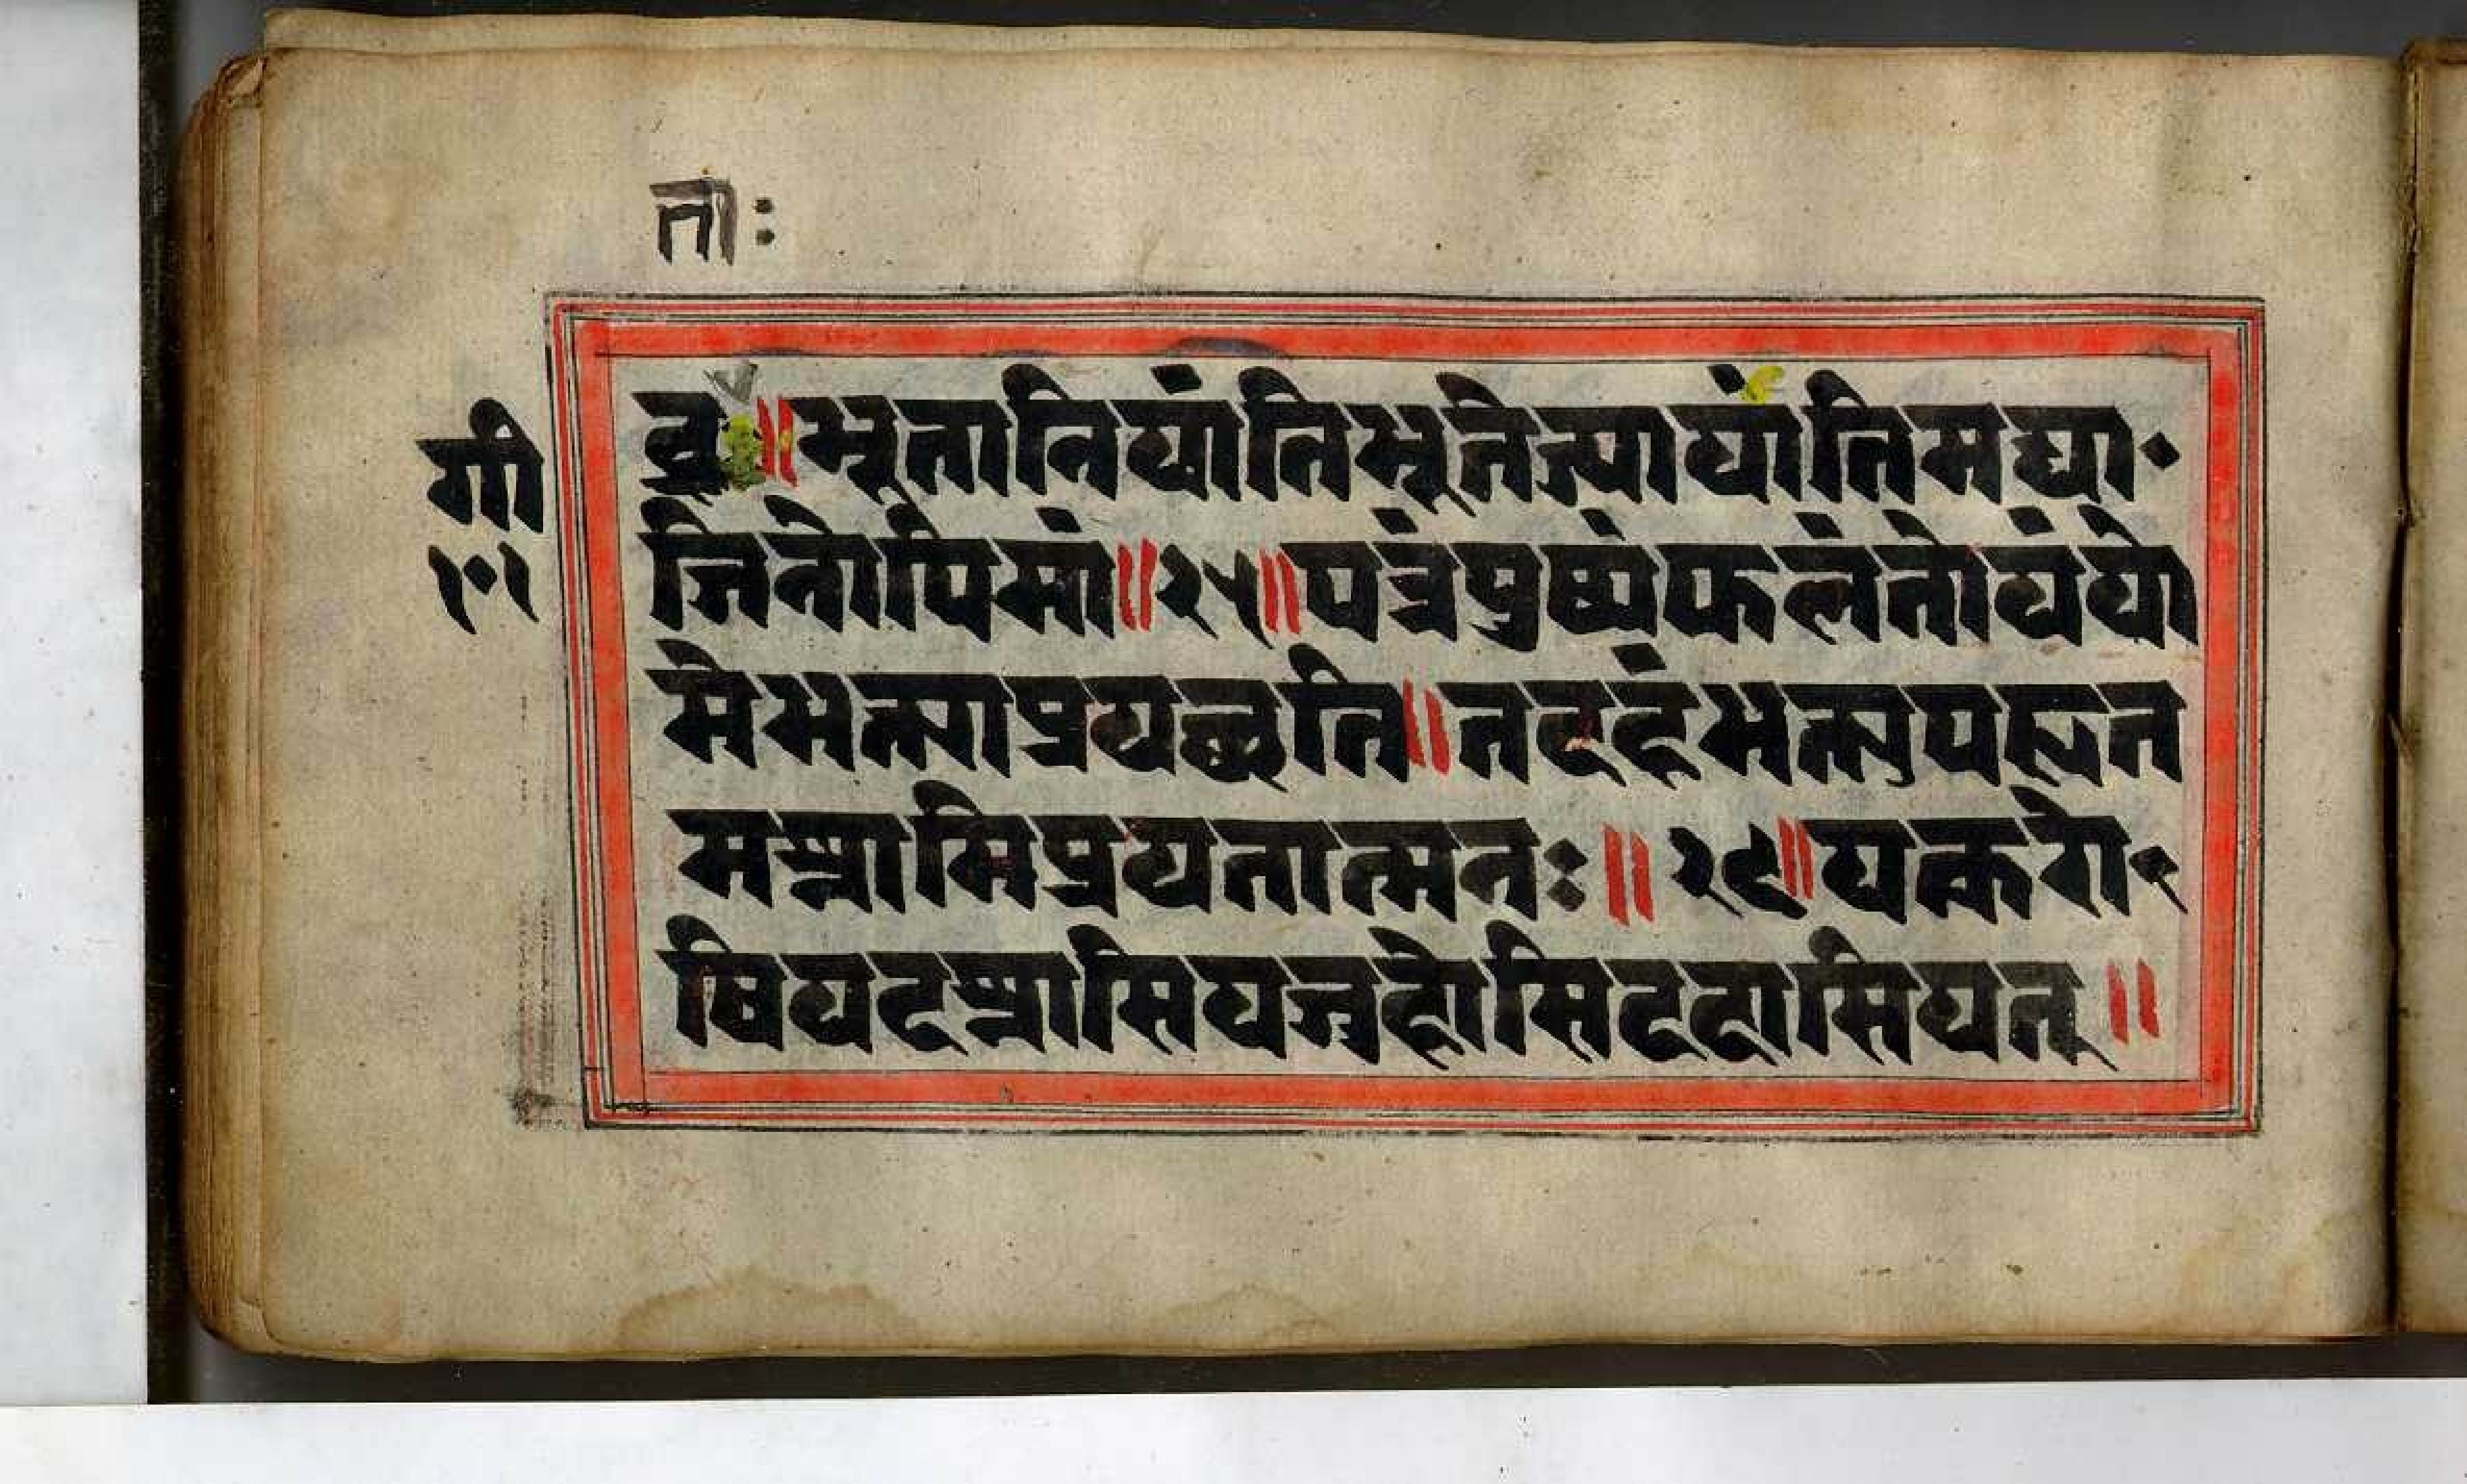 ताः
व्र॥भूतानियांतिभूतेज्यायांतिमद्या॰
गी
जिनोपिमां॥२५॥पत्रंपुष्पंफलंतोयंयो
१०१
मेभक्त्याप्रयछति॥तदहंभक्त्युपहृत
मश्नामिप्रयतात्मनः॥२६॥यत्करो
षियदश्नासियज्जुहोसिददासियत्॥